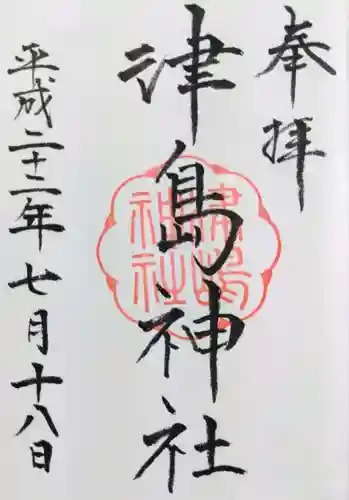 奉拝
津島神社
平成二十二年七月十八日